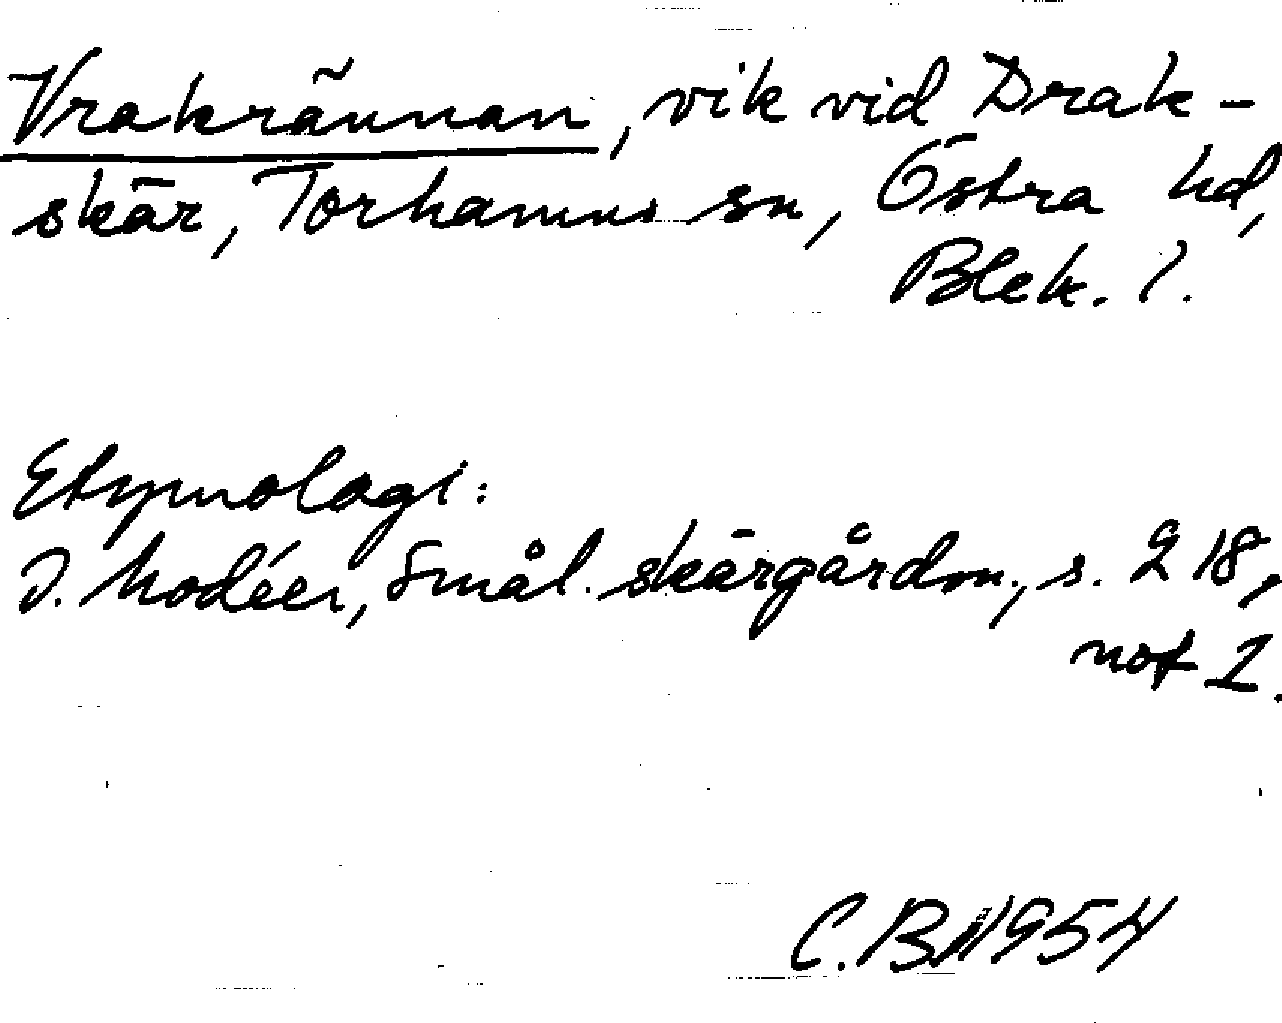 Vrakrännan, vik vid Drak-
skär, Torhamns sn, Östra hd,
Blek. l.
Etymologi:
I. Modéer, Smål. skärgårdsn., s. 218,
not 1.
C.B. 1954